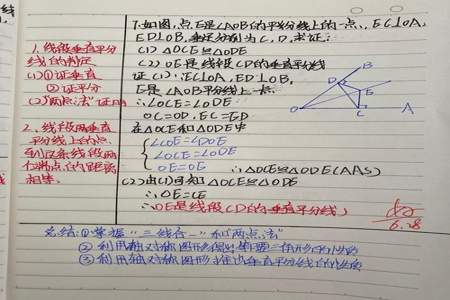 1.线段垂直平分
线的判定
(1)①证垂直
②证平分
(2)"两点法"证明
2、线段垂直
平分线上的点
到这条线段两
个端点的距离
相等。
7.如图,点E是∠AOB的平分线上的一点、EC⊥OA,
ED⊥OB,垂足分别为C,D,求证:
(1) △OCE≌△ODE
(2) OE是线段CD的垂直平分线
证(1):∵EC⊥OA, ED⊥OB,
E是∠AOB平分线上一点
∴∠OCE=∠ODE
OC=OD, EC=ED
在△OCE和△ODE中
∠COE=∠DOE
∠OCE=∠ODE
OE=OE
∴△OCE≌△ODE(AAS)
(2)由(1)可知△OCE≌△ODE
∴DE=CE
∴OE是线段CD的垂直平分线
B
D
E
O
C
A
6.28
总结:①掌握"三线合一"和"两点法"
②利用轴对称图形得出等腰三角形的性质
③利用轴对称图形推出垂直平分线的性质